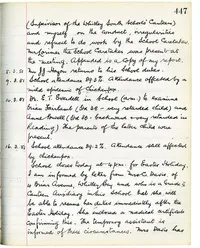 447
(Supervisor of the Whitley South Schools' Canteen)
and myself on the conduct, irregularities
and refusal to do work by the School Caretaker.
the School Caretaker was present at
the meeting. Appended is a copy of my report.
5.3.51 Mr JJ Hogan returns to his School duties.
9.3.51 School attendance 89.3%. Attendance affected by a
mild epidemic of chickenpox.
Dr. E.T. in School (a.m.) to examine
Brian (10.2.40 - very retarded child) and
Anne (Dec. 40 - backward & very retarded in
Reading). The parents of the latter child were
present.
16.3.51 School attendance 89.2%. Attendance still affected
by chickenpox.
School closes today at 4 p.m. for Easter Holiday.
I am informed by letter from Mrs C. Davis, of
Avenue, Whitley Bay, and who is a Grade
Canteen Auxiliary in this School, that she will
be able to resume her duties immediately after the
Easter Holiday. She enclosed a medical certificate
confirming this. The temporary assistant is
informed of these circumstances. Mrs Davis has